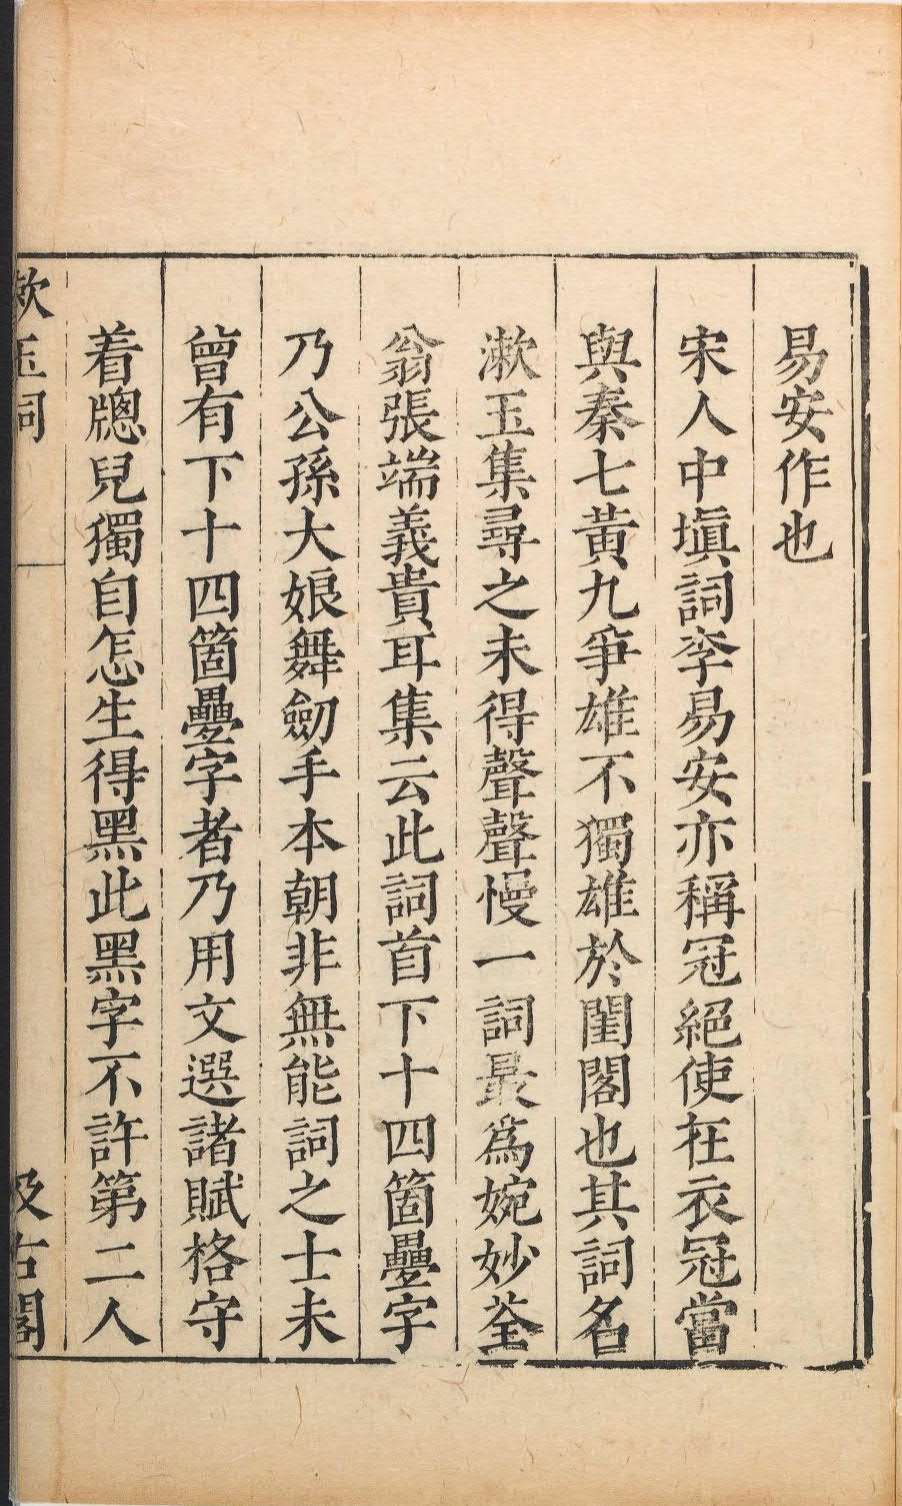 易安作也
宋人中塡詞李易安亦稱冠絕使在衣冠當
與秦七黃九爭雄不獨雄於閨閣也其詞名
漱玉集尋之未得聲聲慢一詞最爲婉妙荃
翁張端義貴耳集云此詞首下十四箇疊字
乃公孫大娘舞劒手本朝非無能詞之士未
曾有下十四箇疊字者乃用文選諸賦格守
着牕兒獨自怎生得黑此黑字不許第二人
漱玉詞
汲古閣